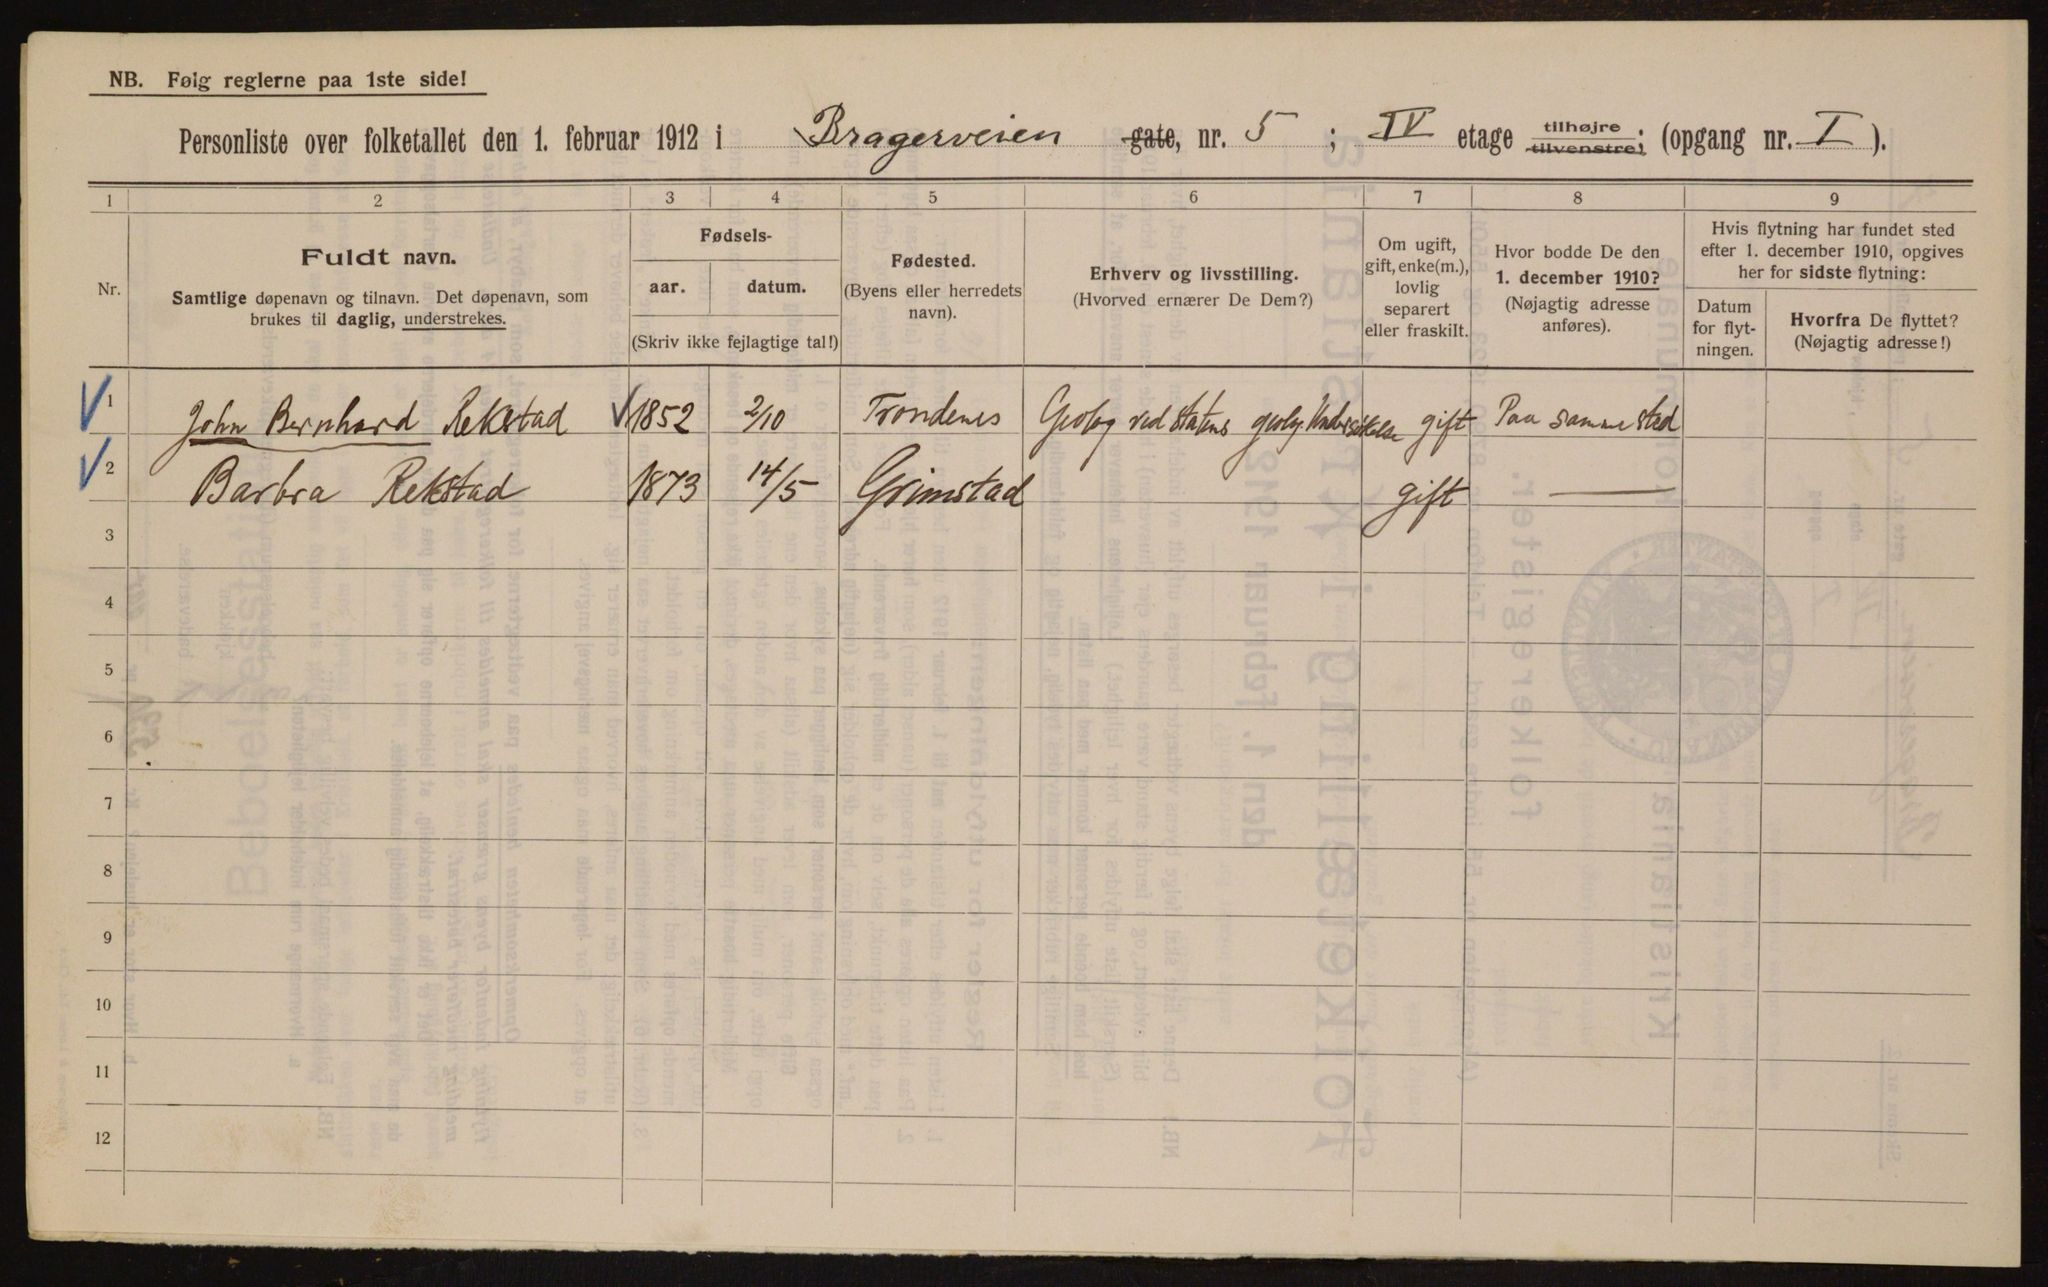 NB. Følg reglerne paa 1ste side!
Personliste over folketallet den 1. februar 1912 i Bragerveien gate, nr. 5 ; IV etage tilhøjre tilvenstre; (opgang nr. I ).
1 2 3 4 5 6 7 8 9
Nr.
Fuldt navn.
Samtlige døpenavn og tilnavn. Det døpenavn, som
brukes til daglig, understrekes.
Fødsels-
aar. datum.
(Skriv ikke fejlagtige tal!)
Fødested.
(Byens eller herredets
navn).
Erhverv og livsstilling.
(Hvorved ernærer De Dem?)
Om ugift,
gift, enke(m.),
lovlig
separert
eller fraskilt.
Hvor bodde De den
1. december 1910?
(Nøjagtig adresse
anføres).
Hvis flytning har fundet sted
efter 1. december 1910, opgives
her for sidste flytning:
Datum
for flyt-
ningen.
Hvorfra De flyttet?
(Nøjagtig adresse!)
1 John Bernhard Rekstad 1852 2/10 Trondenes Geolog ved Statens geolog. Undersøkelse gift Paa samme sted
2 Barbra Rekstad 1873 14/5 Grimstad gift —
3
4
5
6
7
8
9
10
11
12